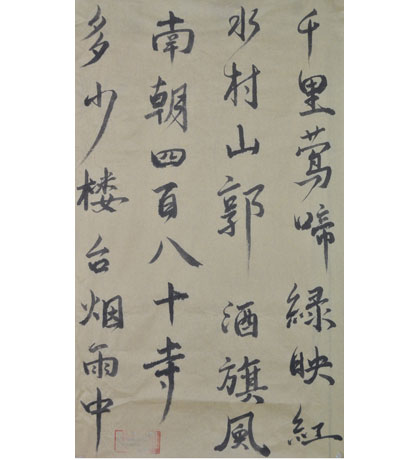 千里莺啼緑映紅
水村山郭酒旗風
南朝四百八十寺
多少楼台烟雨中